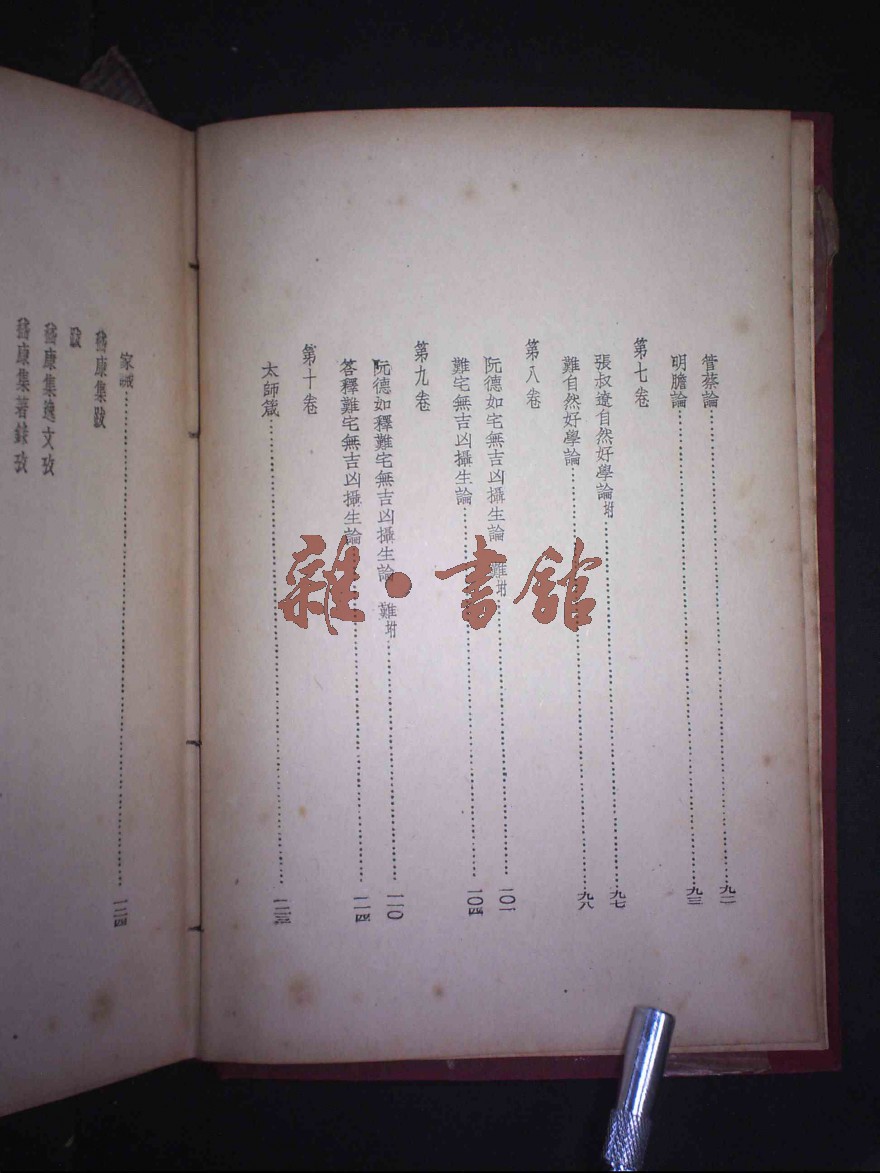 管蔡論……九二
明膽論……九三
第七卷
張叔遼自然好學論坿……九七
難自然好學論……九八
第八卷
阮德如宅無吉凶攝生論 難坿……一〇二
難宅無吉凶攝生論……一〇四
第九卷
阮德如釋難宅無吉凶攝生論 難坿……一一〇
答釋難宅無吉凶攝生論……一一四
第十卷
太師箴……一二三
家誡……一二四
嵇康集跋
跋
嵇康集逸文攷
嵇康集著錄攷
雜·書館